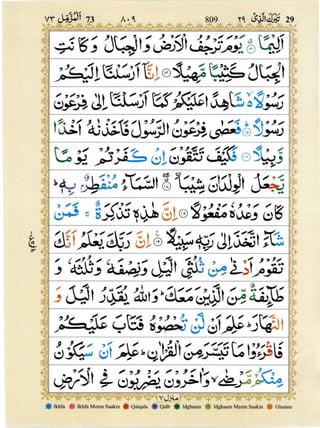 ٧٣ اَلْمُزَّمِّل 73 ٨٠٩ 809 ٢٩ تَبٰرَكَ الَّذِیْ 29
اَلِیْمًا ۝ یَوْمَ تَرْجُفُ الْاَرْضُ وَ الْجِبَالُ وَ كَانَتِ
الْجِبَالُ كَثِیْبًا مَّهِیْلًا ۝ اِنَّاۤ اَرْسَلْنَاۤ اِلَیْكُمْ
رَسُوْلًا ۙ۬ شَاهِدًا عَلَیْكُمْ كَمَاۤ اَرْسَلْنَاۤ اِلٰى فِرْعَوْنَ
رَسُوْلًا ۝ فَعَصٰى فِرْعَوْنُ الرَّسُوْلَ فَاَخَذْنٰهُ اَخْذًا
وَّبِیْلًا ۝ فَكَیْفَ تَتَّقُوْنَ اِنْ كَفَرْتُمْ یَوْمًا
یَّجْعَلُ الْوِلْدَانَ شِیْبَا ۝ اِ۟لسَّمَآءُ مُنْفَطِرٌۢ بِهٖ ؕ
كَانَ وَعْدُهٗ مَفْعُوْلًا ۝ اِنَّ هٰذِهٖ تَذْكِرَةٌ ۚ فَمَنْ
شَآءَ اتَّخَذَ اِلٰى رَبِّهٖ سَبِیْلًا ۝ اِنَّ رَبَّكَ یَعْلَمُ اَنَّكَ
تَقُوْمُ اَدْنٰى مِنْ ثُلُثَیِ الَّیْلِ وَ نِصْفَهٗ وَ ثُلُثَهٗ وَ
طَآىِٕفَةٌ مِّنَ الَّذِیْنَ مَعَكَ ؕ وَ اللّٰهُ یُقَدِّرُ الَّیْلَ وَ
النَّهَارَ ؕ عَلِمَ اَنْ لَّنْ تُحْصُوْهُ فَتَابَ عَلَیْكُمْ
فَاقْرَءُوْا مَا تَیَسَّرَ مِنَ الْقُرْاٰنِ ؕ عَلِمَ اَنْ سَیَكُوْنُ
مِنْكُمْ مَّرْضٰى ۙ وَ اٰخَرُوْنَ یَضْرِبُوْنَ فِی الْاَرْضِ
منزل ٧
Ikhfa Ikhfa Meem Saakin Qalqala Qalb Idghaam Idghaam Meem Saakin Ghunna